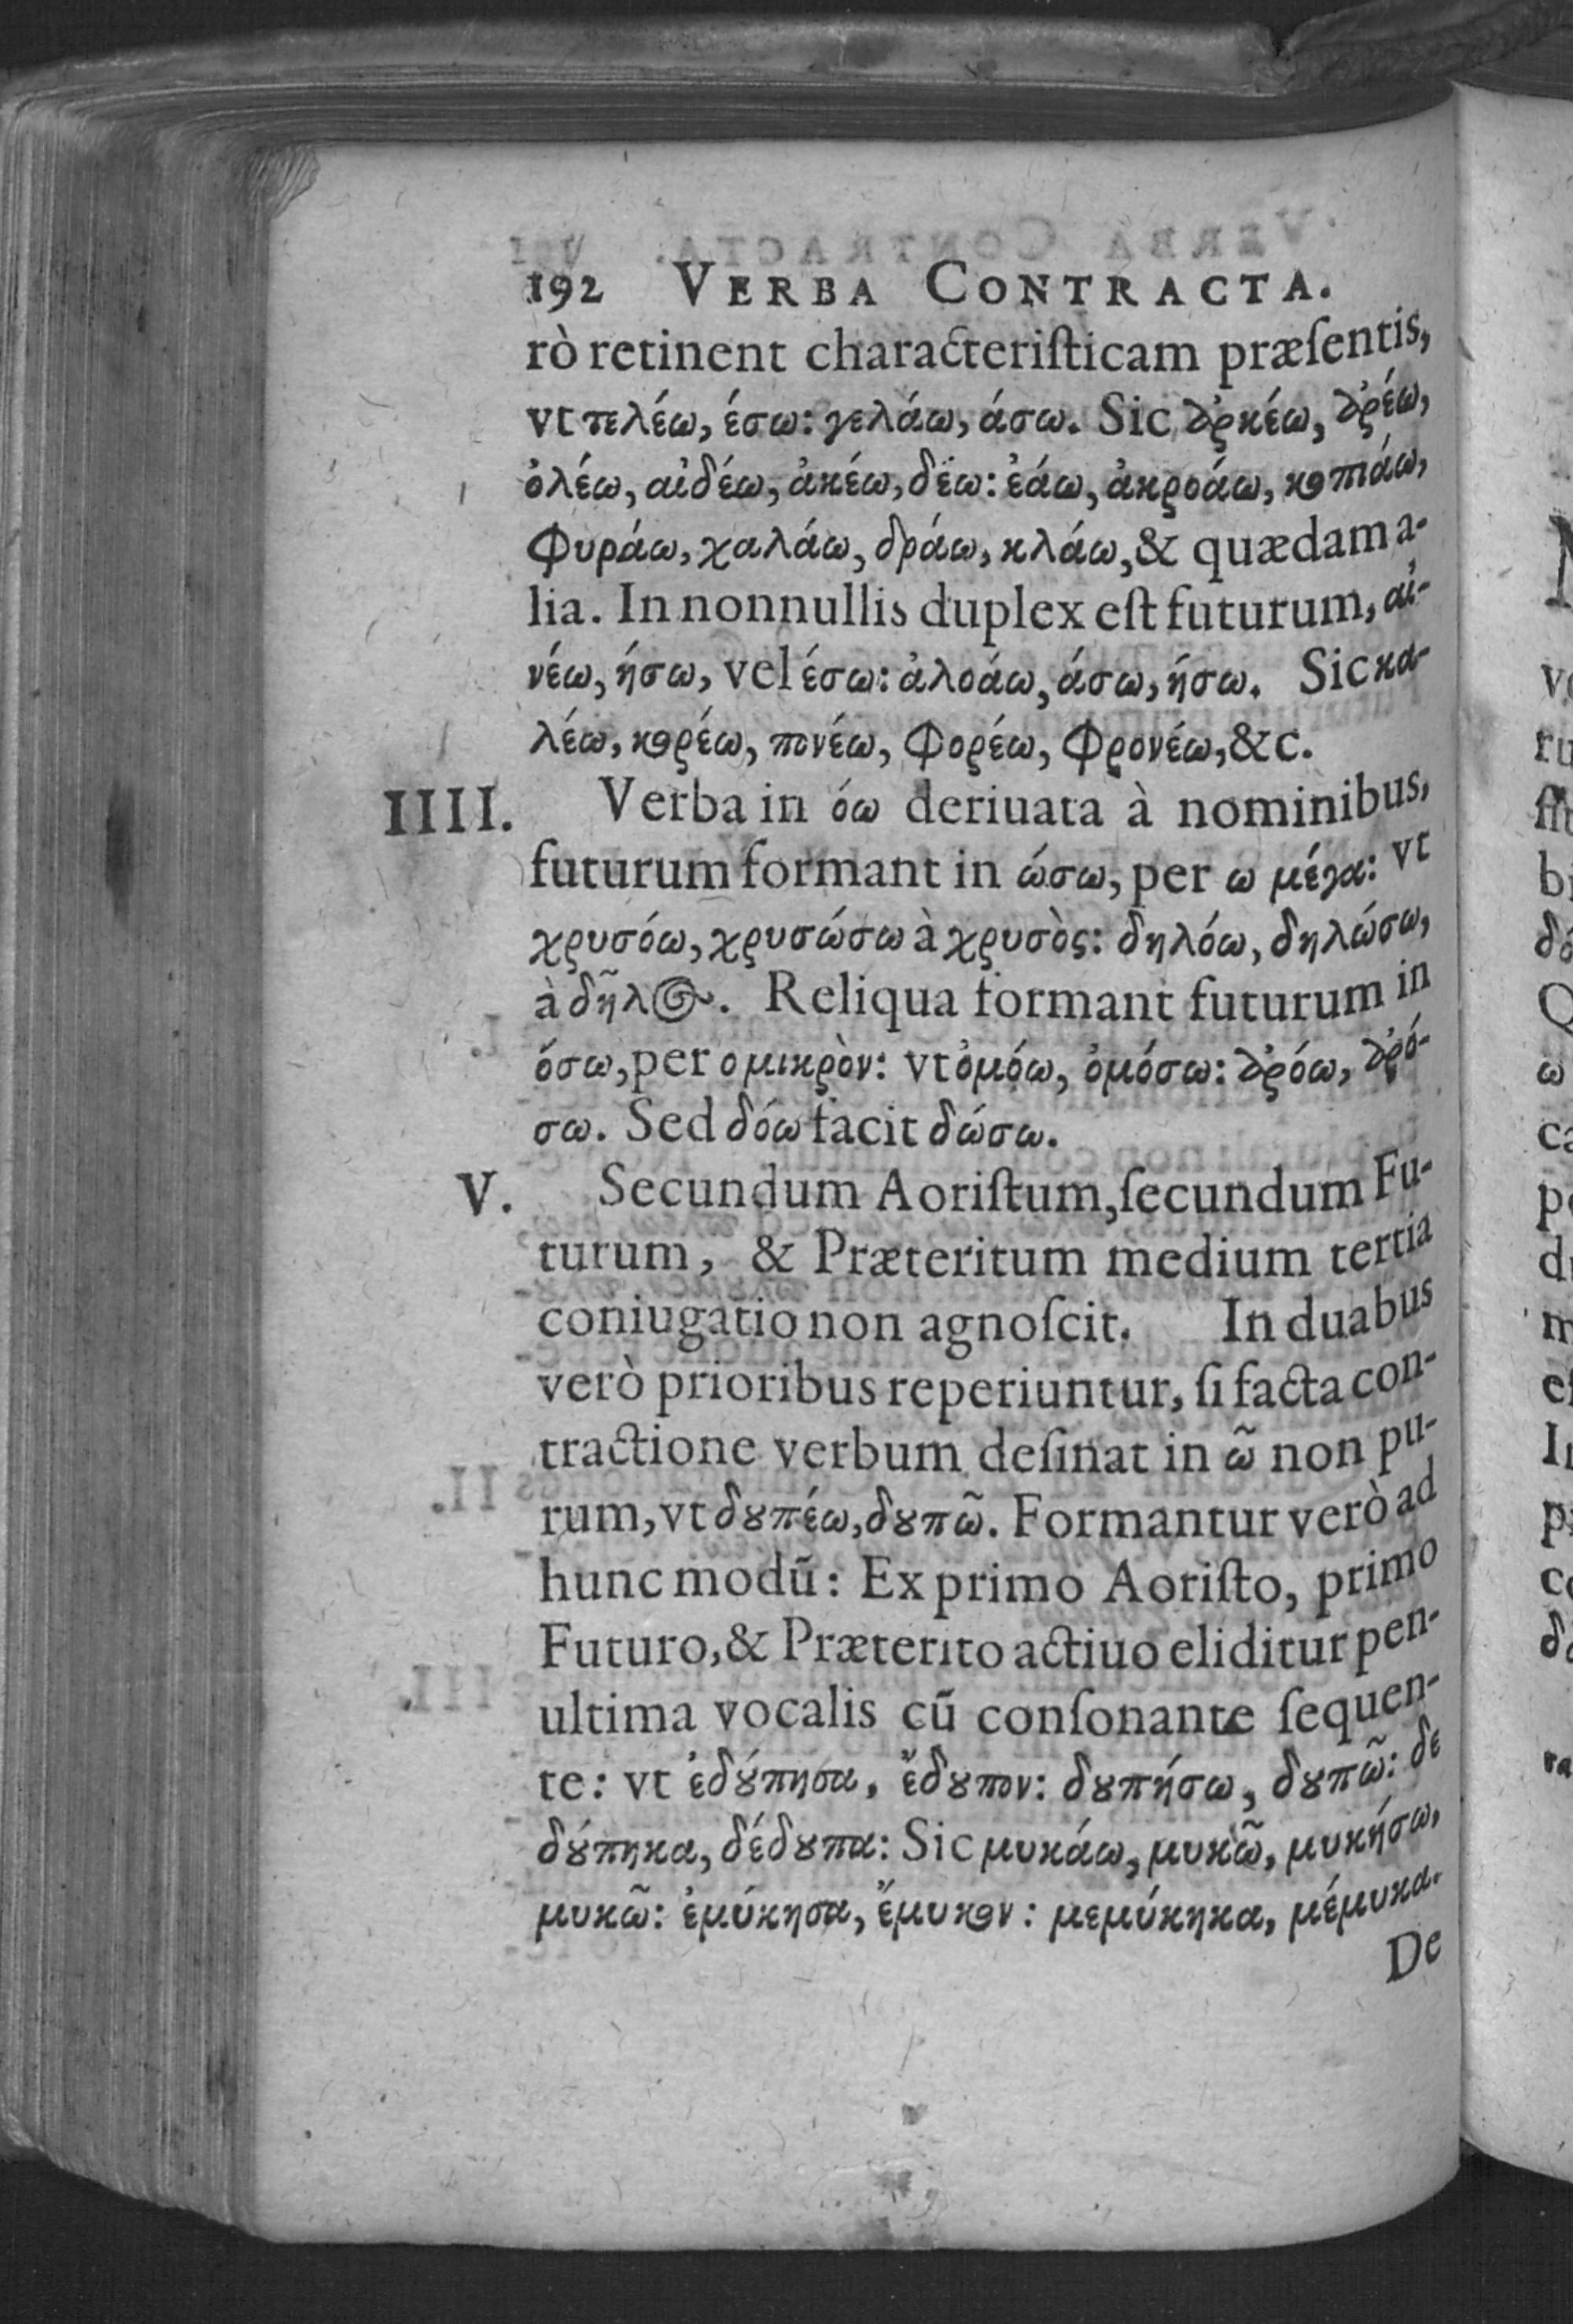 192 VERBA CONTRACTA.
rò retinent characteriſticam præſentis,
vt τελέω, έσω: γελάω, άσω. Sic ἀρκέω, ἀρέω,
ὀλέω, αἰδέω, ἀκέω, δέω: ἐάω, ἀκροάω, κοπιάω,
φυράω, χαλάω, δράω, κλάω, & quædam a-
lia. In nonnullis duplex eſt futurum, αἰ-
νέω, ήσω, vel έσω: ἀλοάω, άσω, ήσω. Sic κα-
λέω, κορέω, πονέω, φορέω, φρονέω, &c.
IIII. Verba in όω deriuata à nominibus,
futurum formant in ώσω, per ω μέγα: vt
χρυσόω, χρυσώσω à χρυσὸς: δηλόω, δηλώσω,
à δῆλος. Reliqua formant futurum in
όσω, per ο μικρὸν: vt ὀμόω, ὀμόσω: ἀρόω, ἀρό-
σω. Sed δόω facit δώσω.
V. Secundum Aoriſtum, ſecundum Fu-
turum, & Præteritum medium tertia
coniugatio non agnoſcit. In duabus
verò prioribus reperiuntur, ſi facta con-
tractione verbum deſinat in ῶ non pu-
rum, vt δȣπέω, δȣπῶ. Formantur verò ad
hunc modū: Ex primo Aoriſto, primo
Futuro, & Præterito actiuo eliditur pen-
ultima vocalis cū conſonante ſequen-
te: vt ἐδȣ́πησα, ἔδȣπον: δȣπήσω, δȣπῶ: δε
δȣ́πηκα, δέδȣπα: Sic μυκάω, μυκῶ, μυκήσω,
μυκῶ: ἐμύκησα, ἔμυκον: μεμύκηκα, μέμυκα.
De